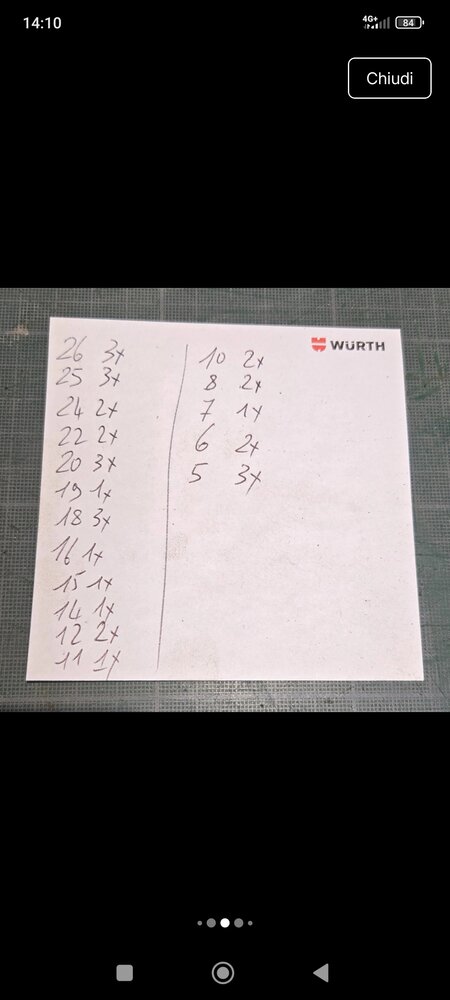 14:10
4G+
84
Chiudi
WÜRTH
26 3x
25 3x
24 2x
22 2x
20 3x
19 1x
18 3x
16 1x
15 1x
14 1x
12 2x
11 1x
10 2x
8 2x
7 1x
6 2x
5 3x